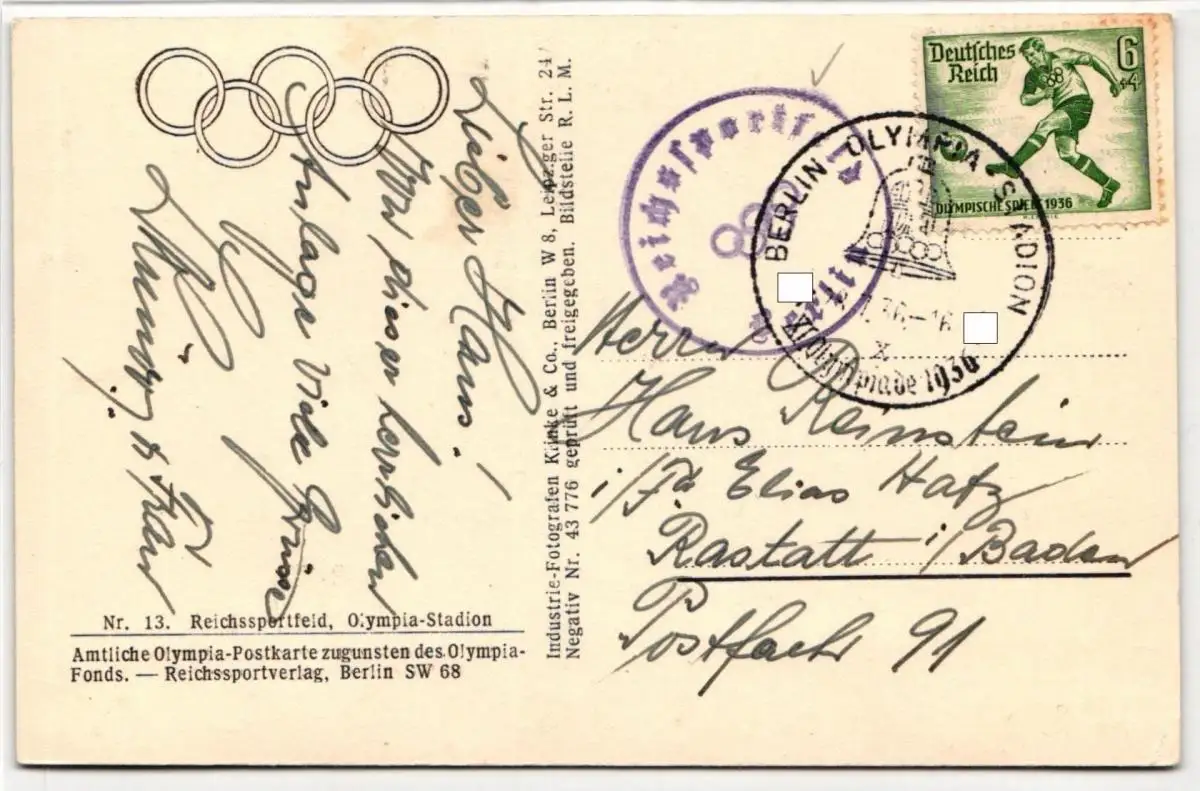 Lieber Hans!
Von dieser herrlichen
Anlage viele Grüsse
& Frau
Nr. 13. Reichssportfeld, Olympia-Stadion
Amtliche Olympia-Postkarte zugunsten des Olympia-
Fonds. — Reichssportverlag, Berlin SW 68
Industrie-Fotografen Klinke & Co., Berlin W 8, Leipziger Str. 24
Negativ Nr. 43 776 geprüft und freigegeben. Bildstelle R. L. M.
Reichssportfeld
BERLIN OLYMPIA-STADION
XI. Olympiade 1936
Deutsches
Reich
6
+4
OLYMPISCHE SPIELE 1936
Herrn
Hans Reinstein
i/Fa Elias Hatz
Rastatt i/Baden
Postfach 91